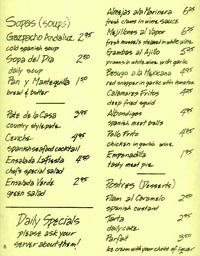 Sopas (soups)
Gazpacho Andaluz 2.95
cold spanish soup
Sopa del Dia 2.50
daily soup
Pan y Mantequilla 1.50
bread & butter
Pate de la Casa 3.95
country style pate
Ceviche 4.95
spanish seafood cocktail
Ensalada La Fiesta 4.50
chef's special salad
Ensalada Verde 2.95
green salad
Daily Specials
please ask your
server about them!
Almejas a la Marinera 6.25
fresh clams in wine sauce
Mejillones al Vapor 6.25
fresh mussels steamed in white wine
Gambas al Ajillo 5.95
prawns in white wine with garlic
Besugo a la Mexicana 4.95
red snapper in garlic with tomatoes
Calamares Fritos 4.95
deep fried squid
Albondigas 4.95
spanish meat balls
Pollo Frito 4.95
chicken in garlic wine
Empanadilla 1.95
tasty meat pie
Postres (Desserts)
Flan al Caramelo 2.50
spanish custard
Tarta 2.95
daily cake
Parfait 3.50
ice cream with your choice of liquor